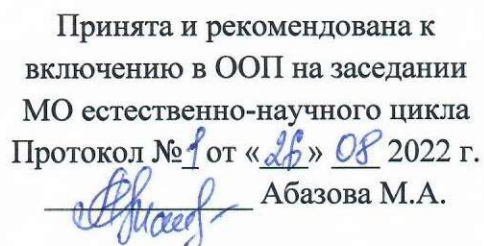 Принята и рекомендована к
включению в ООП на заседании
МО естественно-научного цикла
Протокол №1 от «26» 08 2022 г.
Абазова М.А.